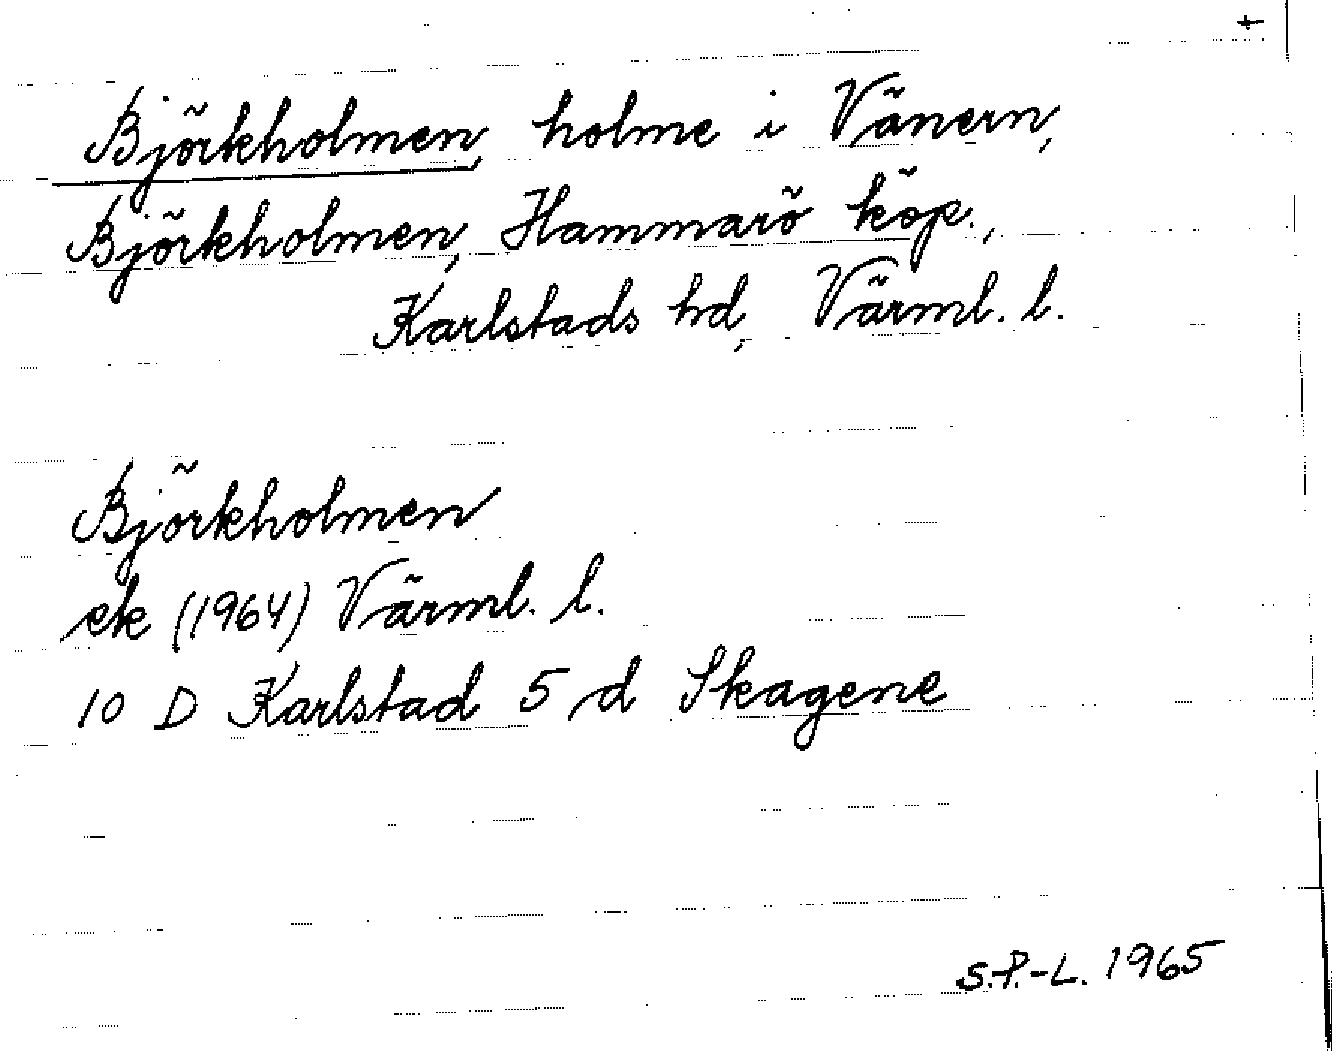 Björkholmen, holme i Vänern,
Björkholmen, Hammarö köp.,
Karlstads hd, Värml. l.
Björkholmen
ek (1964) Värml. l.
10 D Karlstad 5 d Skagene
S.P.-L. 1965